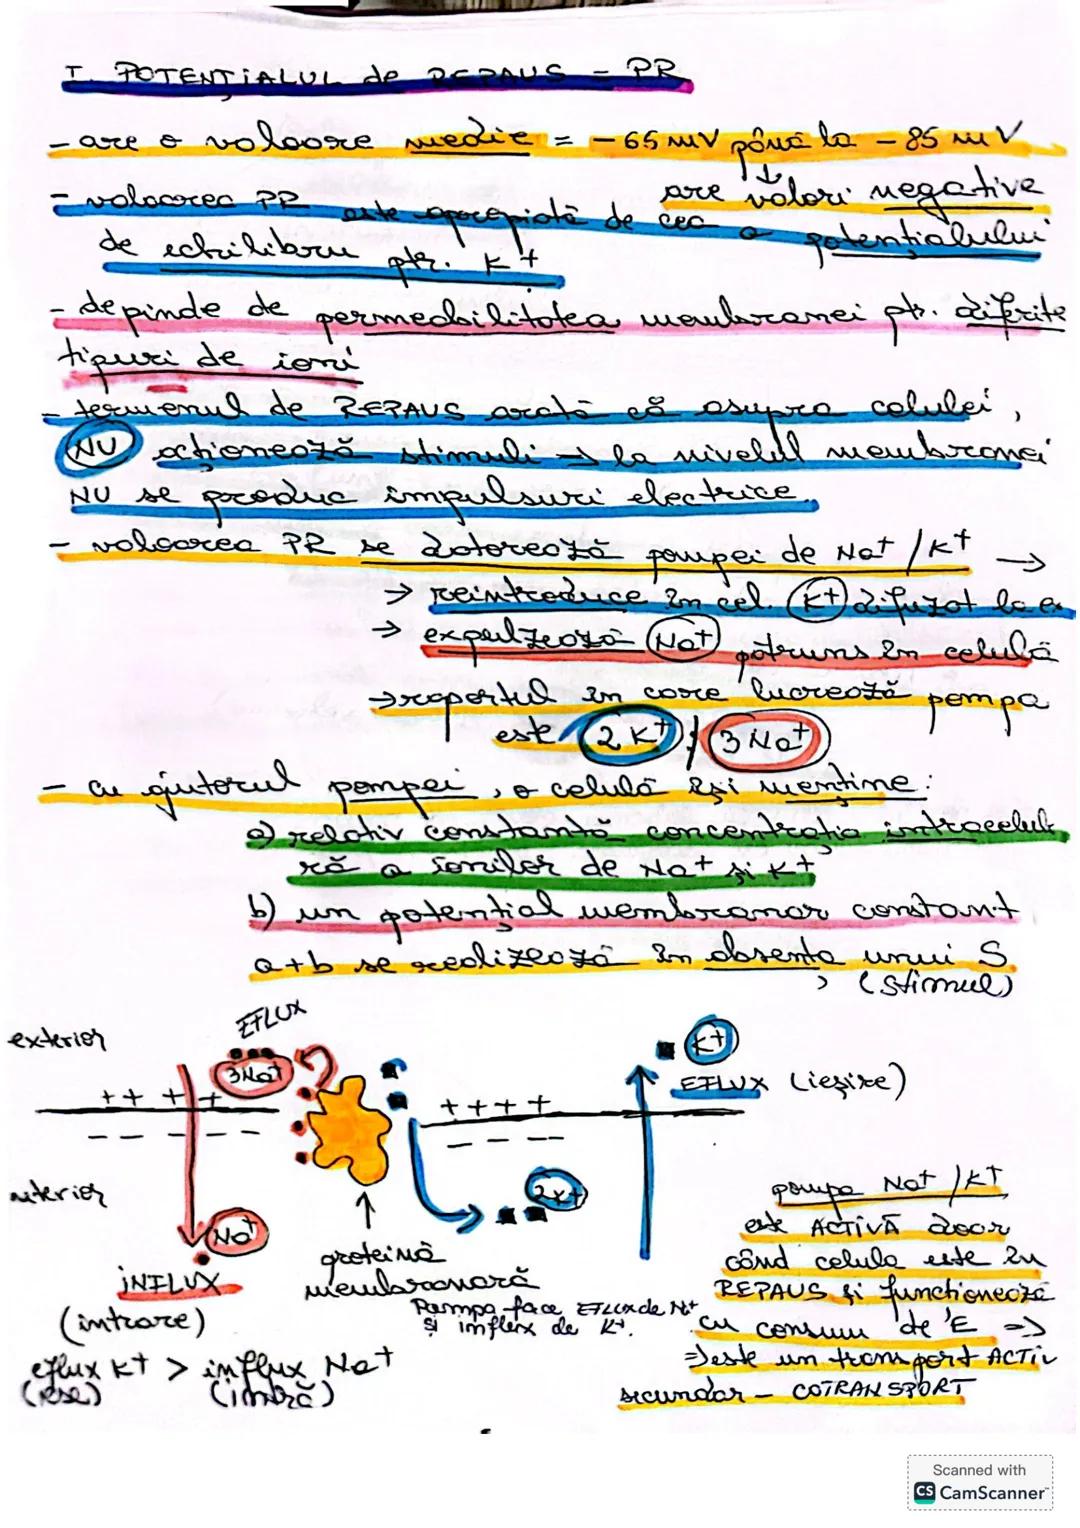 I. POTENȚIALUL de REPAUS = PR
- are o valoare medie = -65 mV până la -85 mV
are valori negative
- valoarea PR este apropiată de cea a potențialului
de echilibru ptr. K+
- depinde de permeabilitatea membranei ptr. diferite
tipuri de ioni
- termenul de REPAUS arată că asupra celulei,
NU acționează stimuli → la nivelul membranei
NU se produc impulsuri electrice.
- valoarea PR se datorează pompei de Na+ /K+ →
→ reintroduce în cel. K+ difuzat la ex
→ expulzează Na+ pătruns în celulă
→ raportul în care lucrează pompa
este 2 K+ / 3 Na+
- cu ajutorul pompei, o celulă își menține:
a) relativ constantă concentrația intracelula
ră a ionilor de Na+ și K+
b) un potențial membranar constant
a+b se realizează în absența unui S.
(Stimul)
EFLUX
exterior
3Na+
K+
EFLUX (ieșire)
++ + +
++++
- - - - - -
- - - -
2K+
interior
Na+
INFLUX
(intrare)
proteină
membranară
Pompa face EFLUX de Na+
și influx de K+.
eflux K+ > influx Na+
(iese) (intră)
pompa Na+ /K+
este ACTIVĂ doar
când celula este în
REPAUS și funcționează
cu consum de E =>
=> este un transport ACTIV
secundar - COTRANSPORT
Scanned with
CS CamScanner